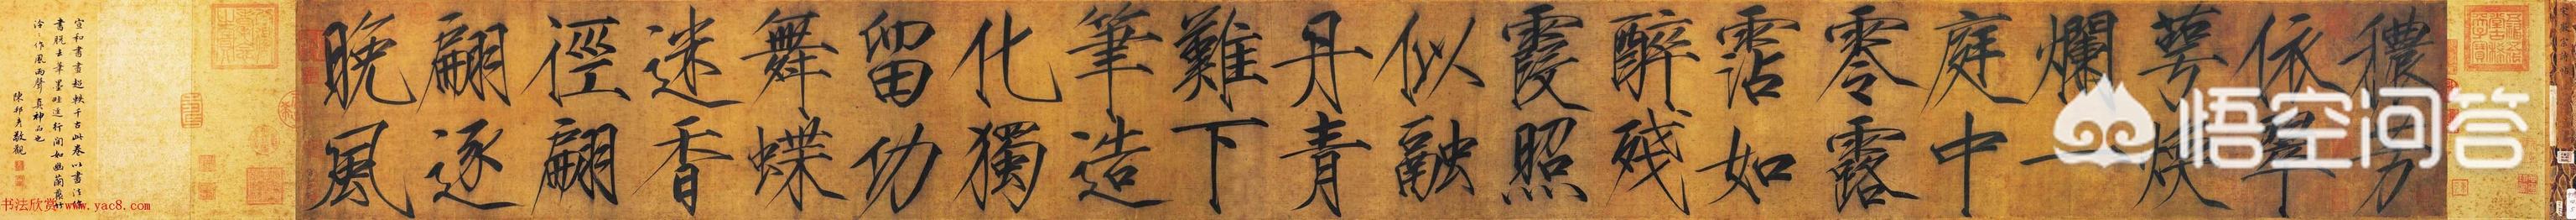 穠芳
依翠
萼煥
爛一
庭中
零露
霑如
醉殘
霞照
似融
丹青
難下
筆造
化獨
留功
舞蝶
迷香
徑翩
翩逐
晚風
宣和書畫超軼千古此卷以畫法作
書脫去筆墨畦逕行間如幽蘭叢竹
泠〻作風雨聲真神品也
陳邦彥敬觀
书法欣赏 www.yac8.com
悟空问答